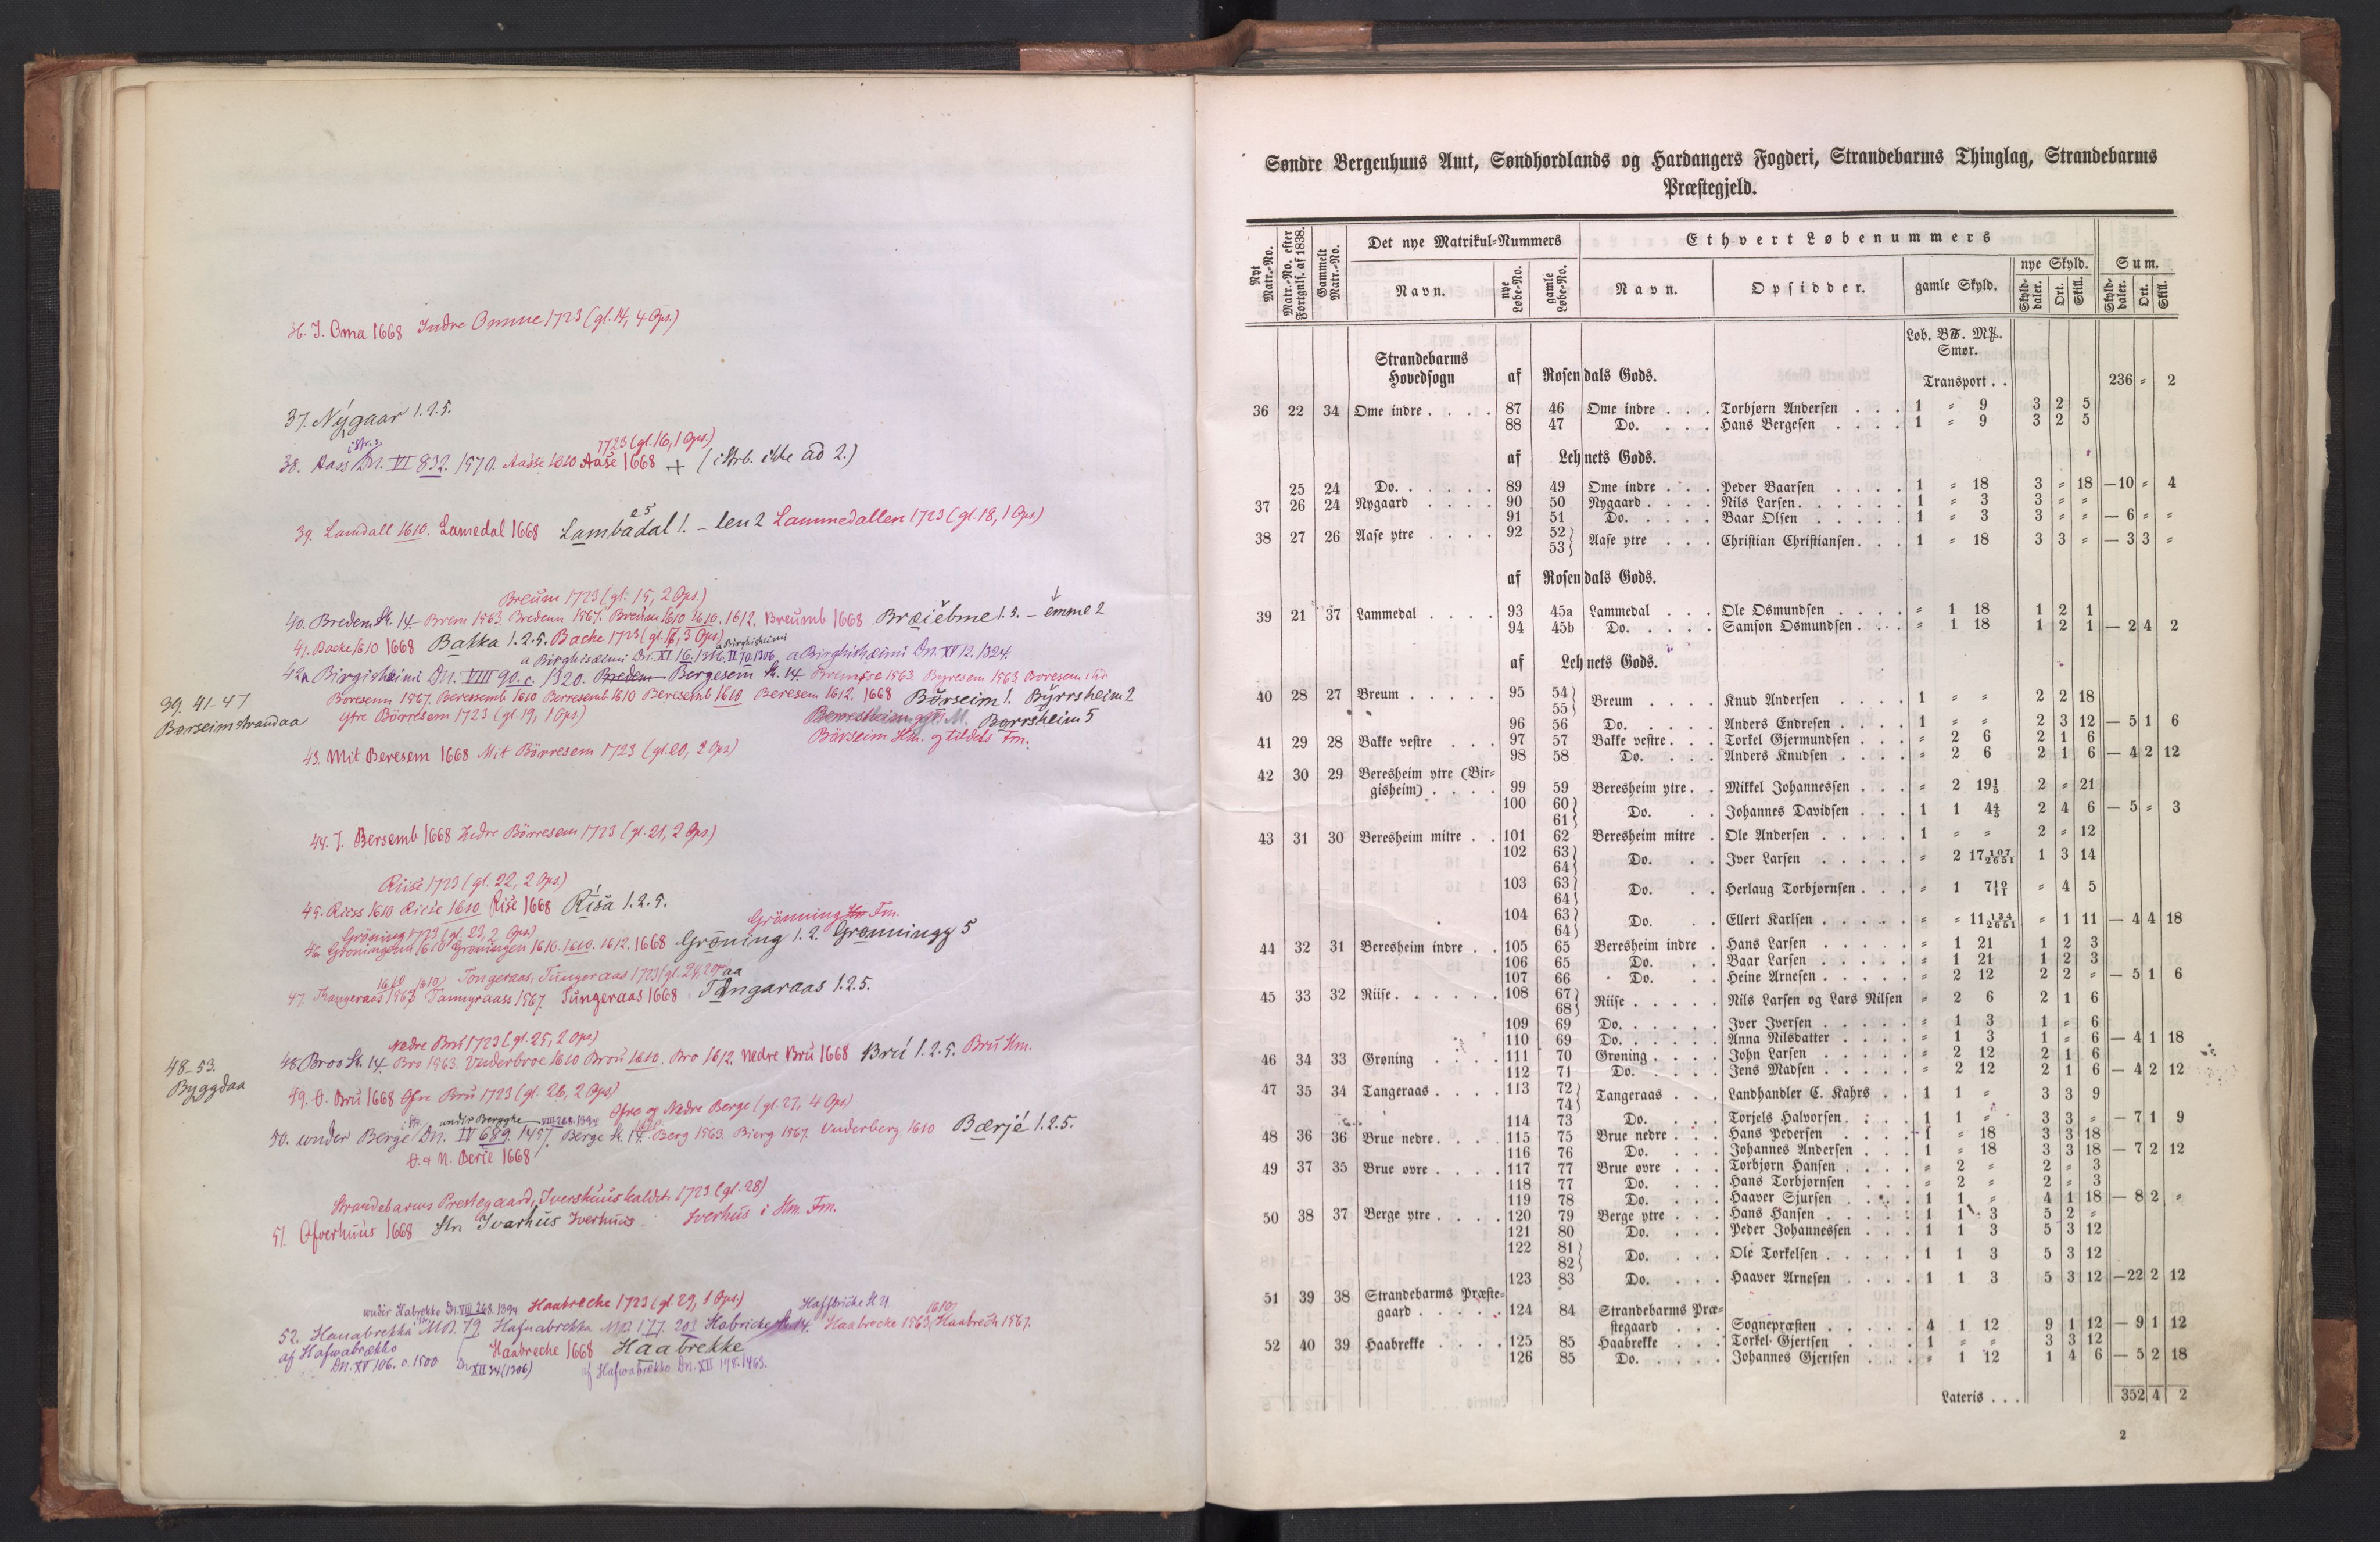 H. I. Oma 1668 Indre Omme 1723 (gl. 14, 4 Ops.)
37. Nýgaar 1.2.5.
1723 (gl. 16, 1 Ops.)
38. Aass Dn. VI 832. 1570. Aasse 1610 Aase 1668 + (i Strb. ikke ad 2.)
39. Lamdall 1610. Lamedal 1668 Lambadal 1. – len 2 Lammedallen 1723 (gl. 18, 1 Ops)
Breum 1723 (gl. 15, 2 Ops.)
40. Bredem St. 14 Brem 1563. Bredenn 1567. Breum 1610 1610. 1612. Breumb 1668 Bræiebme 1.5. – emme 2
41. Backe 1610 1668 Bakka 1.2.5. Bache 1723 (gl. 17, 3 Ops.)
a Birghisæimi Dn. XI 16. 1316. II 70. 1306 a Birghishæimi Dn. XV 12. 1324.
42. Birgisheimi Dn. VIII 90. c. 1320. Bergesem St. 14 1563 Byresem 1563 Boresem
39. 41–47
Borseimstrandaa
Boresenn 1567. Beressemb 1610 Berresemb 1610 Beresemb 1610 Beresem 1612. 1668 Börseim 1. Byrrsheim 2
Ytre Börresem 1723 (gl. 19, 1 Ops) Borrsheim 5
Börseim Hm. og tildels Fm.
43. Mit Beresem 1668 Mit Börresem 1723 (gl. 20, 2 Ops)
44. I. Bersemb 1668 Indre Börresem 1723 (gl. 21, 2 Ops)
Riise 1723 (gl. 22, 2 Ops)
45. Riess 1610 Riese 1610 Rise 1668 Rísa 1.2.5.
Grönning Hm Fm.
Gröning 1723 (gl. 23, 2 Ops)
46. Groningenn 1610 Grøningen 1610. 1610. 1612. 1668 Gröning 1.2. Grønningy 5
Tongeraas, Tungeraas 1723 (gl. 24, 2 Ops)
47. Thangeraas 1563 Tanngraass 1567. Tungeraas 1668 Tangaraas 1.2.5.
48–53.
Byggdaa
Nedre Brú 1723 (gl. 25, 2 Ops)
48. Broo St. 14. Bro 1563. Vnderbroe 1610 Brou 1610. Bro 1612. Nedre Brú 1668 Brú 1.2.5. Brú Hm.
49. Ø. Brú 1668 Øfre Brú 1723 (gl. 26, 2 Ops)
Øfre og Nedre Berge (gl. 27, 4 Ops)
undir Bergghe VIII 268. 1394
50. under Berge Dn. IV 689. 1457. Berge St. 14. Berg 1563. Bierg 1567. Vnderberg 1610 Bærjé 1.2.5.
Ø. & N. Berie 1668
Strandebarms Prestegaard, Ivershuus kaldet 1723 (gl. 28)
51. Ofverhuus 1668 Hn Ivarhús Iverhuus Iverhús i Hm. Fm.
undir Habrekko Dn. VIII 268. 1394 Haabreche 1723 (gl. 29, 1 Ops.)
52. Hauabrekka MB. 79. Hafuabrekka MB 177. 201 Habricke St. 14. Haabrecke 1563. Haabrech 1567.
af Hafwabrækko Haabreche 1668 Haabrekke
Dn. XV 106. c. 1500 Dn. XII 34 (1306) af Hafwabrækko Dn. XII 198. 1463.
Søndre Bergenhuus Amt, Søndhordlands og Hardangers Fogderi, Strandebarms Thinglag, Strandebarms
Præstegjeld.
Nyt Matr.-No. Matr.-No. efter Fortgnls. af 1838. Gammelt Matr.-No. Det nye Matrikul-Nummers Ethvert Løbenummers
Navn. nye Løbe-No. gamle Løbe-No. Navn. Opsidder. gamle Skyld. nye Skyld. Skylddaler. Ort. Skill. Sum. Skylddaler. Ort. Skill.
Løb. B℔. M℔.
Smør.
Strandebarms
Hovedsogn af Rosendals Gods. Transport . . 236 „ 2
36 22 34 Ome indre . . . . 87 46 Ome indre . . . Torbjørn Andersen . . . 1 „ 9 3 2 5
88 47 Do. . . . Hans Bergesen . . . . 1 „ 9 3 2 5
af Lehnets Gods.
25 24 Do. . . . . . 89 49 Ome indre . . . Peder Baarsen . . . . 1 „ 18 3 „ 18 —10 „ 4
37 26 24 Nygaard . . . . 90 50 Nygaard . . . . Nils Larsen . . . . . 1 „ 3 3 „ „
91 51 Do. . . . . Baar Olsen . . . . . 1 „ 3 3 „ „ — 6 „ „
38 27 26 Aase ytre . . . . 92 52 53} Aase ytre . . . Christian Christiansen. . . 1 „ 18 3 3 „ — 3 3 „
af Rosendals Gods.
39 21 37 Lammedal . . . . 93 45a Lammedal . . . Ole Osmundsen . . . . „ 1 18 1 2 1
94 45b Do. . . . . Samson Osmundsen . . . „ 1 18 1 2 1 — 2 4 2
af Lehnets Gods.
40 28 27 Breum . . . . . 95 54 55} Breum . . . . Knud Andersen . . . . 1 „ „ 2 2 18
96 56 Do. . . . . Anders Endresen . . . . 1 „ „ 2 3 12 — 5 1 6
41 29 28 Bakke vestre . . . 97 57 Bakke vestre . . . Torkel Gjermundsen . . . „ 2 6 2 1 6
98 58 Do. . . . Anders Knudsen . . . . „ 2 6 2 1 6 — 4 2 12
42 30 29 Beresheim ytre (Bir-
gisheim) . . . . 99 59 Beresheim ytre . . Mikkel Johannessen . . . „ 2 19⅕ 2 „ 21
100 60 61} Do. . . Johannes Davidsen . . . 1 1 4⅘ 2 4 6 — 5 „ 3
43 31 30 Beresheim mitre . . 101 62 Beresheim mitre . Ole Andersen . . . . . 1 „ „ 2 „ 12
102 63 64} Do. . . Iver Larsen . . . . . „ 2 17 107/2651 1 3 14
103 63 64} Do. . . Herlaug Torbjørnsen . . . „ 1 7 10/11 „ 4 5
104 63 64} Do. . . Ellert Karlsen . . . . . „ „ 11 134/2651 „ 1 11 — 4 4 18
44 32 31 Beresheim indre . . 105 65 Beresheim indre . Hans Larsen . . . . . „ 1 21 1 2 3
106 65 Do. . . Baar Larsen . . . . . „ 1 21 1 2 3
107 66 Do. . . Heine Arnesen . . . . . „ 2 12 2 2 „ — 5 1 6
45 33 32 Riise . . . . . . 108 67 68} Riise . . . . . Nils Larsen og Lars Nilsen „ 2 6 2 1 6
109 69 Do. . . . . . Iver Iversen . . . . . „ 1 3 1 „ 6
110 69 Do. . . . . . Anna Nilsdatter . . . . „ 1 3 1 „ 6 — 4 1 18
46 34 33 Grøning . . . . 111 70 Grøning . . . . John Larsen . . . . . „ 2 12 2 1 6
112 71 Do. . . . . Jens Madsen . . . . . „ 2 12 2 1 6 — 4 2 12
47 35 34 Tangeraas . . . . 113 72 74} Tangeraas . . . Landhandler C. Kahrs . . 1 1 „ 3 3 9
114 73 Do. . . . Torjels Halvorsen . . . . 1 1 „ 3 3 „ — 7 1 9
48 36 36 Brue nedre . . . . 115 75 Brue nedre . . . Hans Pedersen . . . . 1 „ 18 3 3 18
116 76 Do. . . . Johannes Andersen . . . 1 „ 18 3 3 18 — 7 2 12
49 37 35 Brue øvre . . . . 117 77 Brue øvre . . . Torbjørn Hansen . . . . „ 2 „ 2 „ 3
118 77 Do. . . . Hans Torbjørnsen . . . „ 2 „ 2 „ 3
119 78 Do. . . . Haaver Sjursen . . . . 1 1 „ 4 1 18 — 8 2 „
50 38 37 Berge ytre . . . . 120 79 Berge ytre . . . Hans Hansen . . . . . 1 1 3 5 2 „
121 80 Do. . . . Peder Johannessen . . . 1 1 3 5 3 12
122 81 82} Do. . . . Ole Torkelsen . . . . . 1 1 3 5 3 12
123 83 Do. . . . Haaver Arnesen . . . . 1 1 3 5 3 12 —22 2 12
51 39 38 Strandebarms Præste-
gaard . . . . . 124 84 Strandebarms Præ-
stegaard . . . Sognepræsten . . . . . 4 1 12 9 1 12 — 9 1 12
52 40 39 Haabrekke . . . . 125 85 Haabrekke . . . Torkel Gjertsen . . . . 1 „ „ 3 3 12
126 85 Do. . . . . Johannes Gjertsen . . . „ 1 12 1 4 6 — 5 2 18
Lateris . . . 352 4 2
2